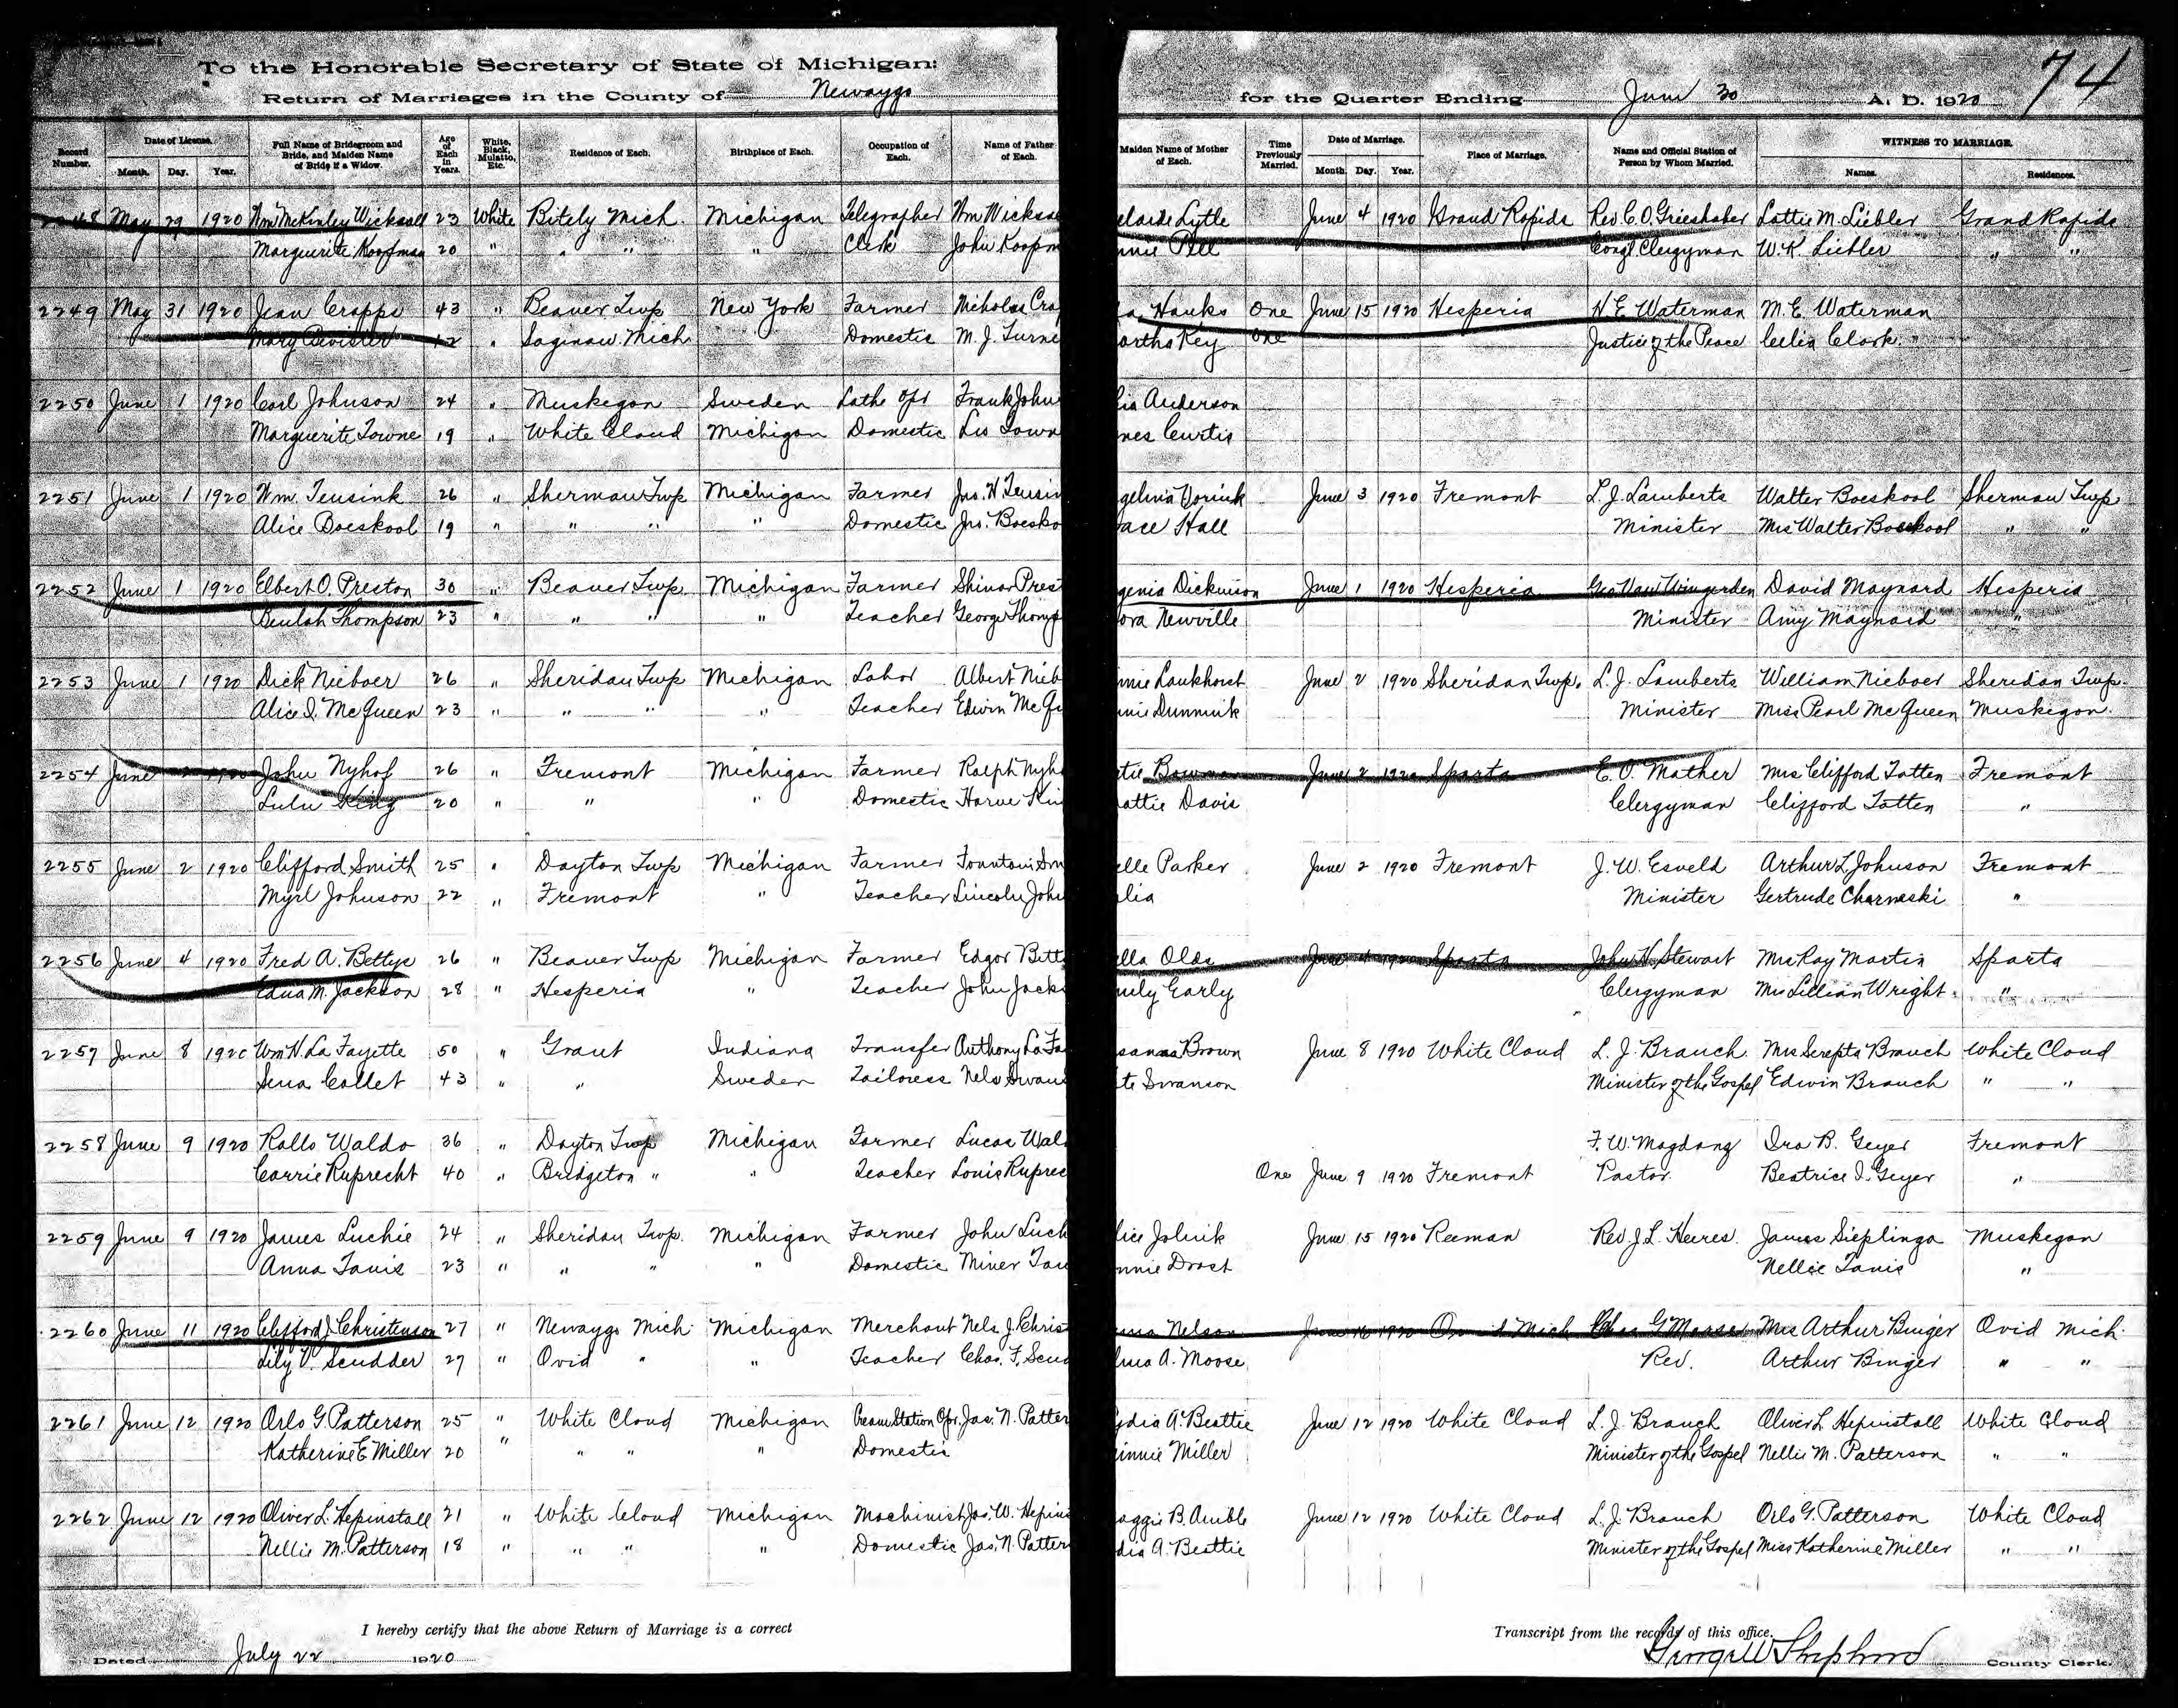 74
To the Honorable Secretary of State of Michigan:
Return of Marriages in the County of Newaygo for the Quarter Ending June 30 A. D. 1920
Record Number. Date of License. Month. Day. Year. Full Name of Bridegroom and Bride, and Maiden Name of Bride if a Widow. Age of Each in Years. White, Black, Mulatto, Etc. Residence of Each. Birthplace of Each. Occupation of Each. Name of Father of Each. Maiden Name of Mother of Each. Time Previously Married. Date of Marriage. Month. Day. Year. Place of Marriage. Name and Official Station of Person by Whom Married. WITNESS TO MARRIAGE. Names. Residences.
2248 May 29 1920 Wm McKinley Wicksall 23 White Bitely Mich. Michigan Telegrapher Wm Wicksa elaide Lytle June 4 1920 Grand Rapids Rev C. O. Grieshaber Lottie M. Liebler Grand Rapids
Marguerite Koopman 20 " " " " Clerk John Koopm nnie Pell Congl. Clergyman W. K. Liebler " "
2249 May 31 1920 Jean Crapps 43 " Beaver Twp New York Farmer Nicholas Cra a Hanks One June 15 1920 Hesperia H E Waterman M. E. Waterman
Mary " Saginaw Mich Domestic M. J. Turne artha Key One Justice of the Peace Celia Clark "
2250 June 1 1920 Carl Johnson 24 " Muskegon Sweden Lathe Opr Frank John is Anderson
Marguerite Towne 19 " White Cloud Michigan Domestic Les Town nes Curtis
2251 June 1 1920 Wm. Teusink 26 " Sherman Twp Michigan Farmer Jno. H Teusin gelina Vorink June 3 1920 Fremont L. J. Lamberts Walter Boeskool Sherman Twp
Alice Boeskool 19 " " " " Domestic Jno. Boesko ace Hall Minister Mrs Walter Boeskool " "
2252 June 1 1920 Elbert O. Preston 30 " Beaver Twp. Michigan Farmer Shinar Prest genia Dickinson June 1 1920 Hesperia Geo Van Wingerden David Maynard Hesperia
Beulah Thompson 23 " " " " Teacher George Thomp ora Newville Minister Amy Maynard "
2253 June 1 1920 Dick Nieboer 26 " Sheridan Twp Michigan Labor Albert Nieb nnie Lankhorst June 2 1920 Sheridan Twp. L. J. Lamberts William Nieboer Sheridan Twp.
Alice I. McQueen 23 " " " " Teacher Edwin McQu nnie Dunnink Minister Miss Pearl McQueen Muskegon.
2254 June 2 1920 John Nyhof 26 " Fremont Michigan Farmer Ralph Nyh tie Bowman June 2 1920 Sparta E. O. Mather Mrs Clifford Totten Fremont
Lulu King 20 " " " Domestic Harve Kin attie Davis Clergyman Clifford Totten "
2255 June 2 1920 Clifford Smith 25 " Dayton Twp Michigan Farmer Fountain Sm elle Parker June 2 1920 Fremont J. W. Esveld Arthur L Johnson Fremont
Myrl Johnson 22 " Fremont " Teacher Lincoln John lia Minister Gertrude Charneski "
2256 June 4 1920 Fred A. Bettye 26 " Beaver Twp Michigan Farmer Edgar Bett ella Olds June 4 1920 Sparta John H. Stewart Mrs Ray Martin Sparta
Edna M. Jackson 28 " Hesperia " Teacher John Jacks mily Early Clergyman Mrs Lillian Wright "
2257 June 8 1920 Wm H. La Fayette 50 " Grant Indiana Transfer Anthony La Fa sanna Brown June 8 1920 White Cloud L. J. Branch. Mrs Serepta Branch White Cloud
Sena Collet 43 " " Sweden Tailoress Nels Swans te Swanson Minister of the Gospel Edwin Branch " "
2258 June 9 1920 Rollo Waldo 36 " Dayton Twp Michigan Farmer Lucas Wal F. W. Magdanz Ira B. Geyer Fremont
Carrie Ruprecht 40 " Bridgeton " " Teacher Louis Ruprec One June 9 1920 Fremont Pastor. Beatrice I. Geyer "
2259 June 9 1920 James Luchie 24 " Sheridan Twp. Michigan Farmer John Luch lice Jolink June 15 1920 Reeman Rev. J. L. Heeres. James Sieplinga Muskegan
Anna Tanis 23 " " " " Domestic Miner Tan nnie Drost Nellie Tanis "
2260 June 11 1920 Clifford J. Christenson 27 " Newaygo Mich. Michigan Merchant Nels J. Chris ma Nelson June 16 1920 Ovid Mich Chas G Moose Mrs Arthur Binger Ovid Mich.
Lily V. Scudder 27 " Ovid " " Teacher Chas. F. Scud lma A. Moose Rev. Arthur Binger " "
2261 June 12 1920 Orlo G. Patterson 25 " White Cloud Michigan Cream Station Opr. Jas. N. Patter ydia A. Beattie June 12 1920 White Cloud L. J. Branch Oliver L Hepinstall White Cloud
Katherine E Miller 20 " " " " Domestic innie Miller Minister of the Gospel Nellie M. Patterson " "
2262 June 12 1920 Oliver L. Hepinstall 21 " White Cloud Michigan Machinist Jas. W. Hepins aggie B. Amble June 12 1920 White Cloud L. J. Branch Orlo G. Patterson White Cloud
Nellie M. Patterson 18 " " " " Domestic Jas. N. Patter dia A. Beattie Minister of the Gospel Miss Katherine Miller " "
I hereby certify that the above Return of Marriage is a correct Transcript from the records of this office.
Dated July 22 1920 George W Shepherd County Clerk.